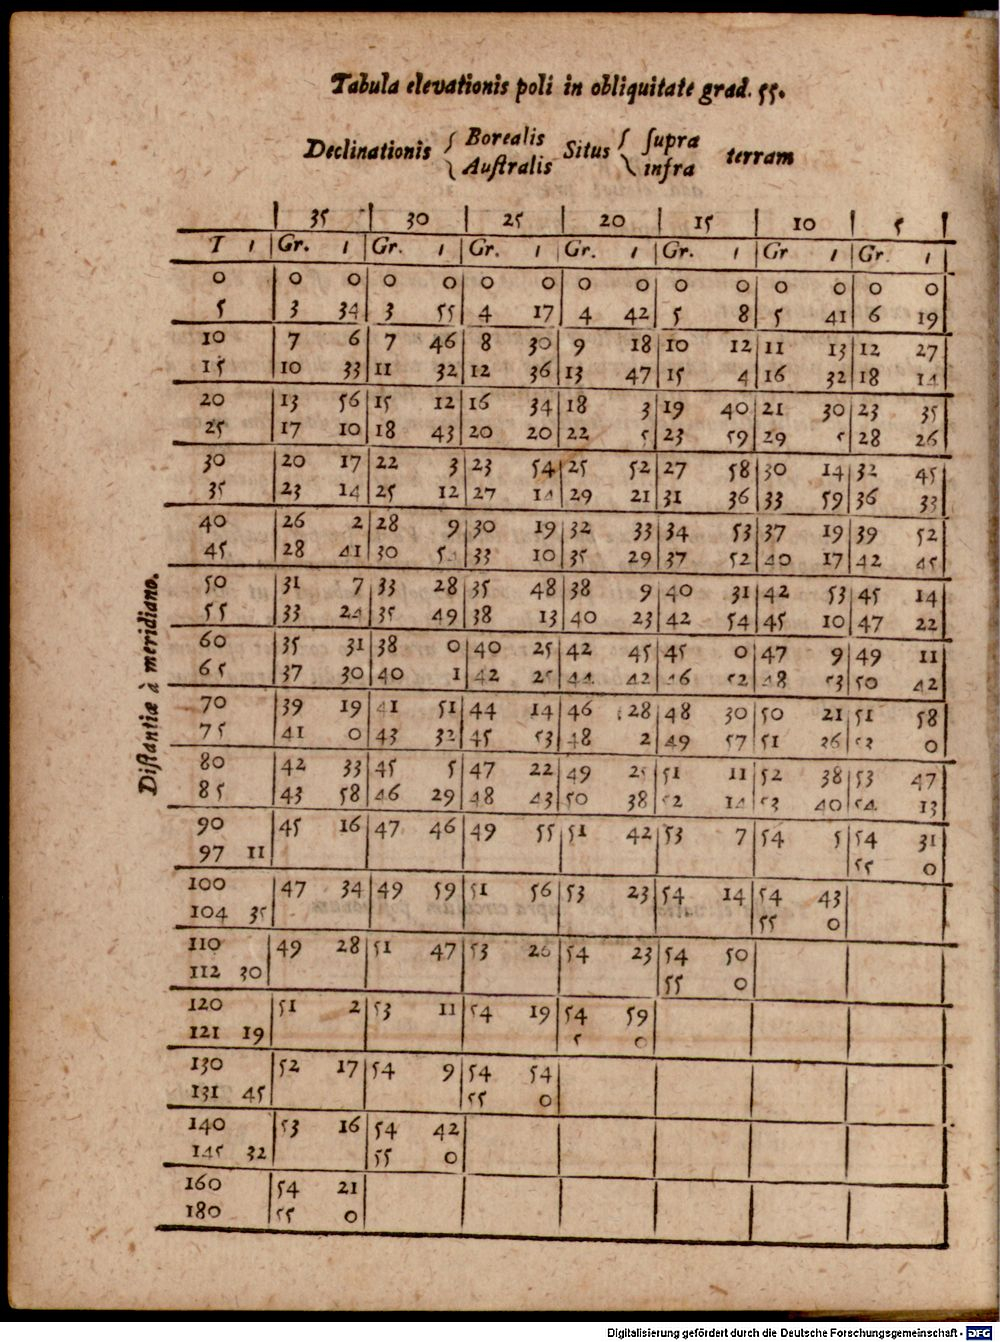 Tabula elevationis poli in obliquitate grad. 55.
Declinationis { Borealis Situs { supra terram
{ Australis { infra
35 30 25 20 15 10 5
T 1 Gr. 1 Gr. 1 Gr. 1 Gr. 1 Gr. 1 Gr 1 Gr. 1
0 0 0 0 0 0 0 0 0 0 0 0 0 0 0
5 3 34 3 55 4 17 4 42 5 8 5 41 6 19
10 7 6 7 46 8 30 9 18 10 12 11 13 12 27
15 10 33 11 32 12 36 13 47 15 4 16 32 18 14
20 13 56 15 12 16 34 18 3 19 40 21 30 23 35
25 17 10 18 43 20 20 22 5 23 59 29 5 28 26
30 20 17 22 3 23 54 25 52 27 58 30 14 32 45
35 23 14 25 12 27 14 29 21 31 36 33 59 36 33
40 26 2 28 9 30 19 32 33 34 53 37 19 39 52
45 28 41 30 54 33 10 35 29 37 52 40 17 42 45
50 31 7 33 28 35 48 38 9 40 31 42 53 45 14
55 33 24 35 49 38 13 40 23 42 54 45 10 47 22
60 35 31 38 0 40 25 42 45 45 0 47 9 49 11
65 37 30 40 1 42 25 44 42 46 52 48 53 50 42
70 39 19 41 51 44 14 46 28 48 30 50 21 51 58
75 41 0 43 32 45 53 48 2 49 57 51 36 53 0
80 42 33 45 5 47 22 49 25 51 11 52 38 53 47
85 43 58 46 29 48 43 50 38 52 14 53 40 54 13
90 45 16 47 46 49 55 51 42 53 7 54 5 54 31
97 11 55 0
100 47 34 49 59 51 56 53 23 54 14 54 43
104 35 55 0
110 49 28 51 47 53 26 54 23 54 50
112 30 55 0
120 51 2 53 11 54 19 54 59
121 19 5 0
130 52 17 54 9 54 54
131 45 55 0
140 53 16 54 42
145 32 55 0
160 54 21
180 55 0
Distantiæ à meridiano.
Digitalisierung gefördert durch die Deutsche Forschungsgemeinschaft - DFG